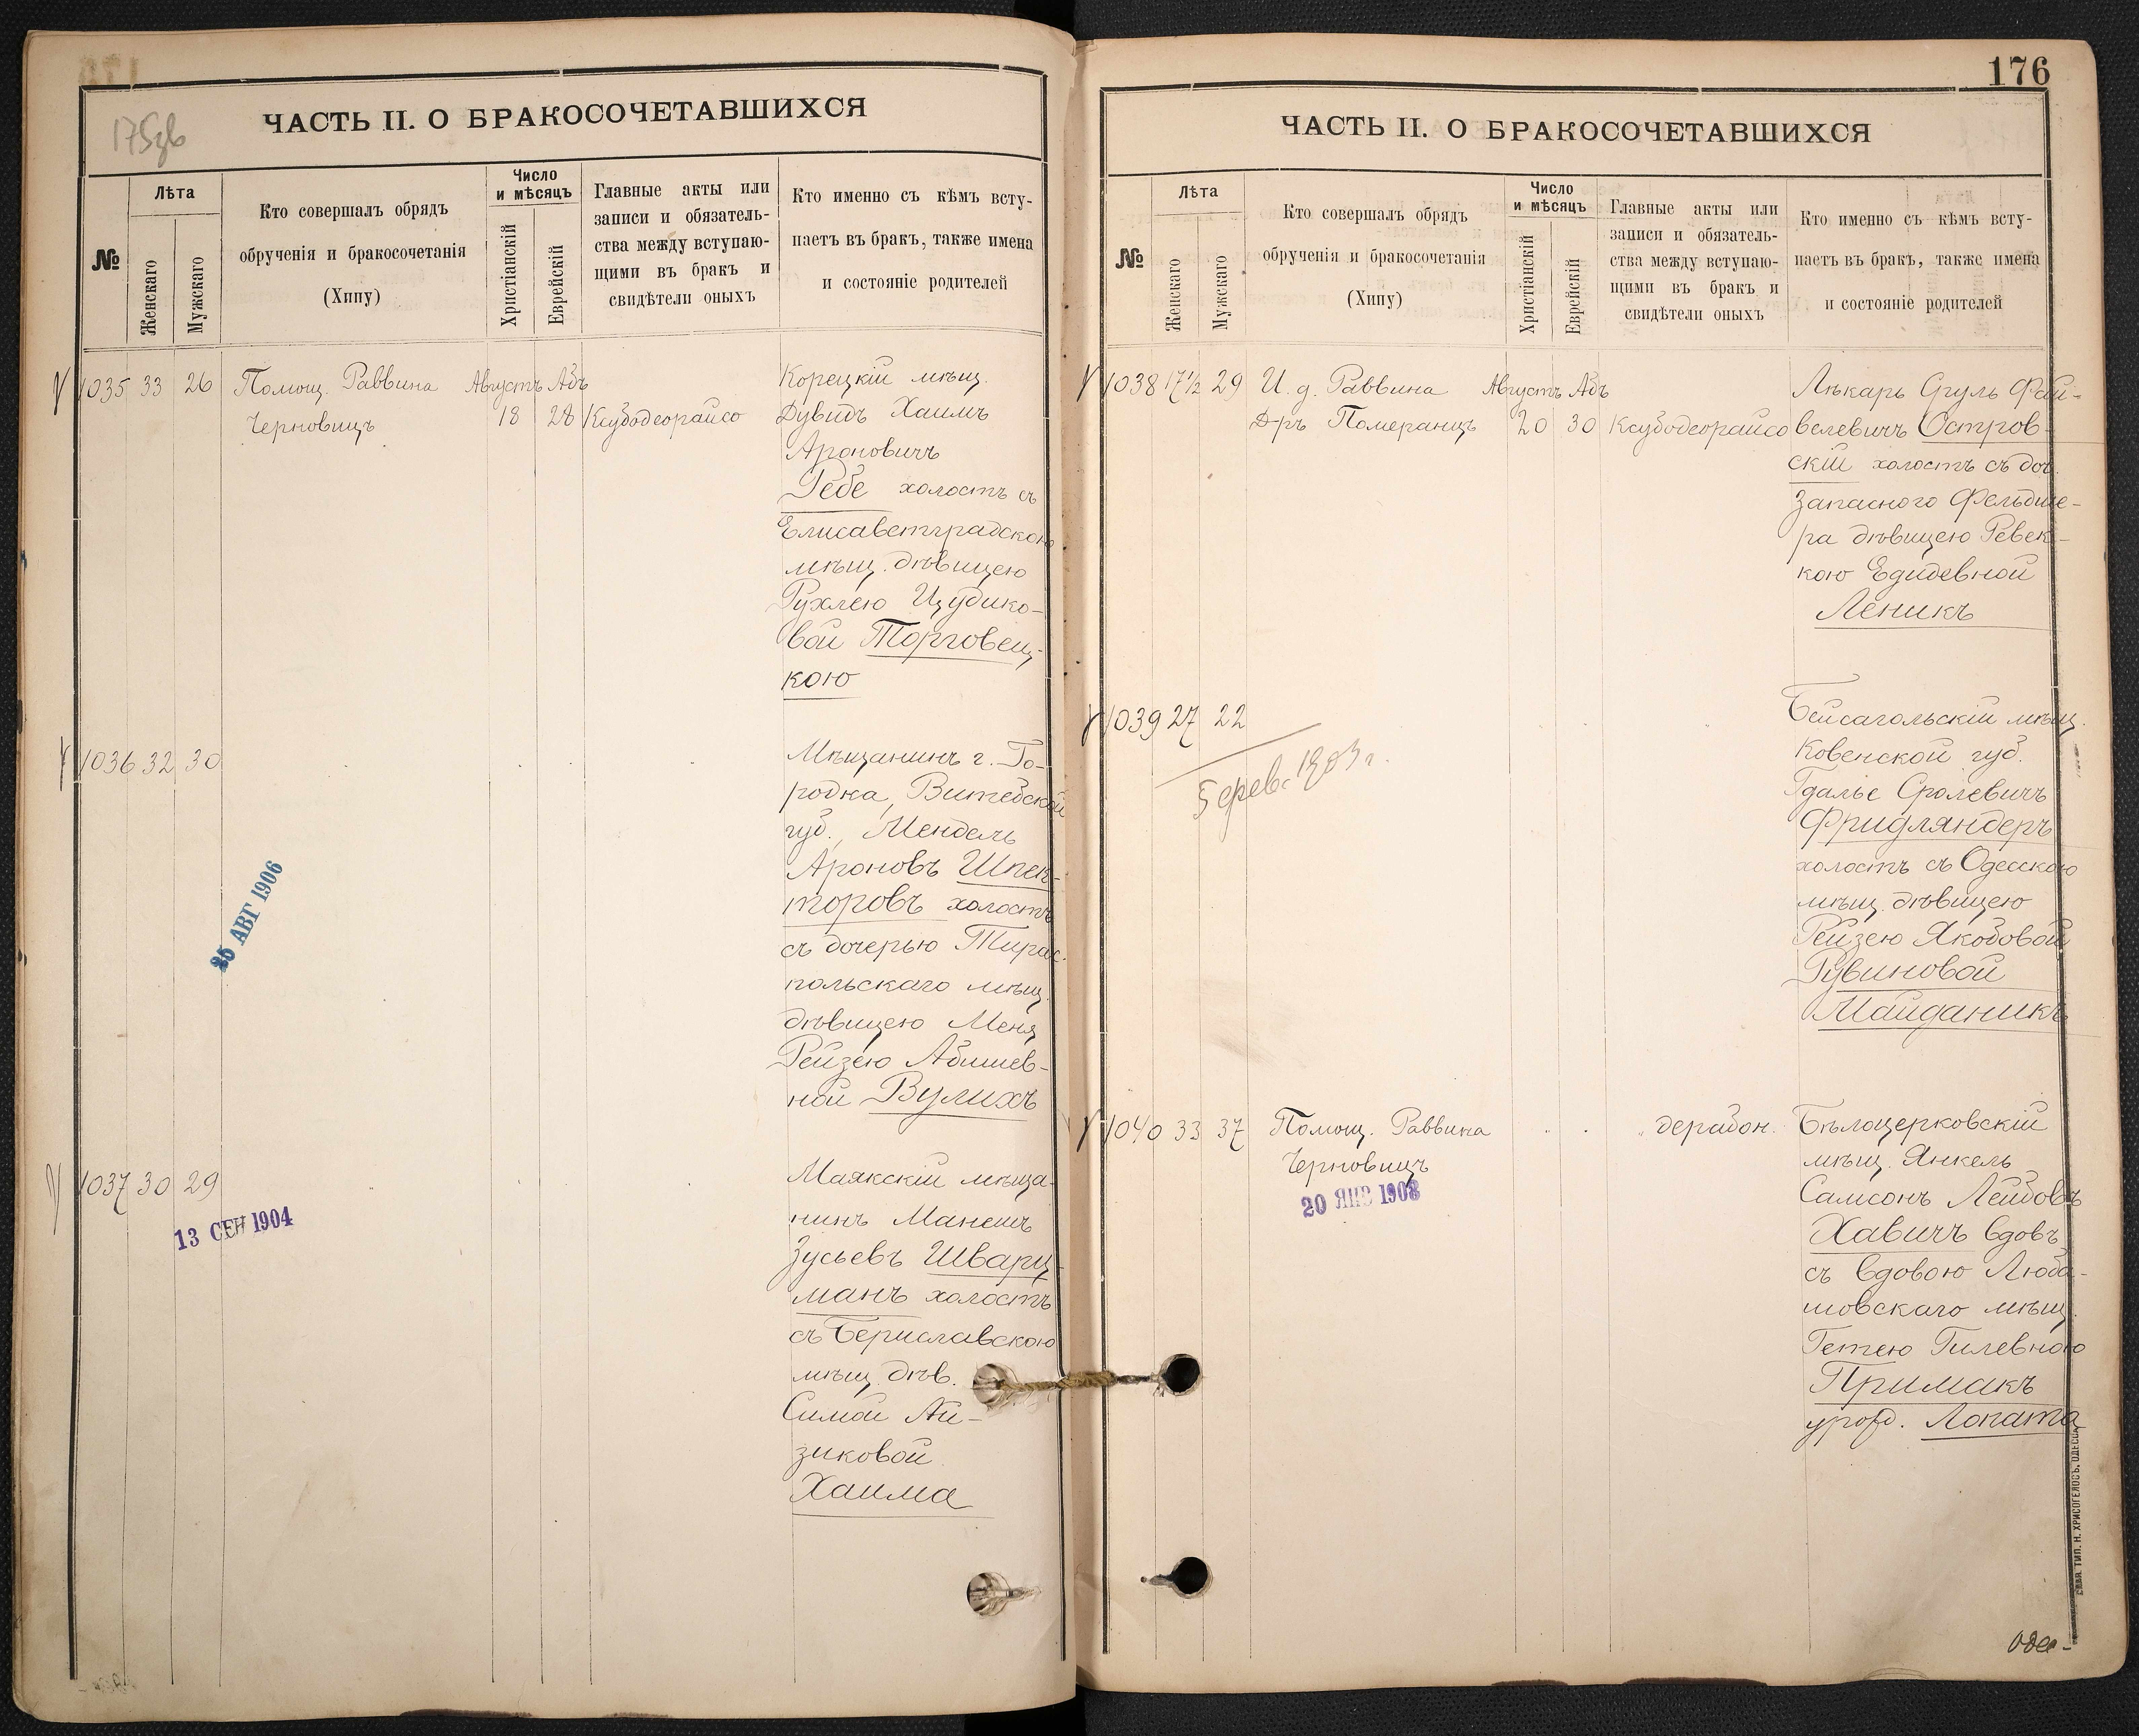 175зв
ЧАСТЬ II. О БРАКОСОЧЕТАВШИХСЯ
№
Лѣта
Женскаго
Мужскаго
Кто совершалъ обрядъ
обрученія и бракосочетанія
(Хипу)
Число
и мѣсяцъ
Христіанскій
Еврейскій
Главные акты или
записи и обязатель-
ства между вступаю-
щими въ бракъ и
свидѣтели оныхъ
Кто именно съ кѣмъ всту-
паетъ въ бракъ, также имена
и состояніе родителей
1035 33 26 Помощ. Раввина Августъ Абъ Корецкій мѣщ.
Черновицъ 18 28 Ксубодеорайсо Дувидъ Хаимъ
Ароновичъ
Ребе холостъ съ
Елисаветградскою
мѣщ. дѣвицею
Рухлею Цудико-
вой Торговец-
кою
1036 32 30 Мѣщанинъ г. Го-
родка, Витебской
губ., Мендель
Ароновъ Шпек-
торовъ холостъ
съ дочерью Тирас-
польскаго мѣщ.
дѣвицею Меня
Рейзею Абмиев-
ной Вулихъ
25 АВГ 1906
1037 30 29 Маякскій мѣща-
нинъ Манешъ
Зусьевъ Шварц-
манъ холостъ
съ Бериславскою
мѣщ. дѣв.
Симой Ай-
зиковой
Хаима
13 СЕН 1904
176
ЧАСТЬ II. О БРАКОСОЧЕТАВШИХСЯ
№
Лѣта
Женскаго
Мужскаго
Кто совершалъ обрядъ
обрученія и бракосочетанія
(Хипу)
Число
и мѣсяцъ
Христіанскій
Еврейскій
Главные акты или
записи и обязатель-
ства между вступаю-
щими въ бракъ и
свидѣтели оныхъ
Кто именно съ кѣмъ всту-
паетъ въ бракъ, также имена
и состояніе родителей
1038 17½ 29 И. д. Раввина Августъ Абъ Лѣкарь Сруль Фай-
Д-ръ Померанцъ 20 30 Ксубодеорайсо велевичъ Остров-
скій холостъ съ доч.
запасного Фельдше-
ра дѣвицею Ревек-
кою Едидевной
Леникъ
1039 27 22 Бейсагольскій мѣщ.
Ковенской губ.
Гдалье Сролевичъ
Фридляндеръ
холостъ съ Одесскою
мѣщ. дѣвицею
Рейзею Якобовой
Рувиновой
Майданикъ
5 февр. 1903 г.
1040 33 37 Помощ. Раввина дерабон. Бѣлоцерковскій
Черновицъ мѣщ. Янкель
Самсонъ Лейбовъ
Хавичъ вдовъ
съ вдовою Люба-
шовскаго мѣщ.
Гетею Гилевною
Примакъ
урожд. Лопата
20 ЯНВ 1908
ТИП. Н. ХРИСОГЕЛОСЪ, ОДЕССА